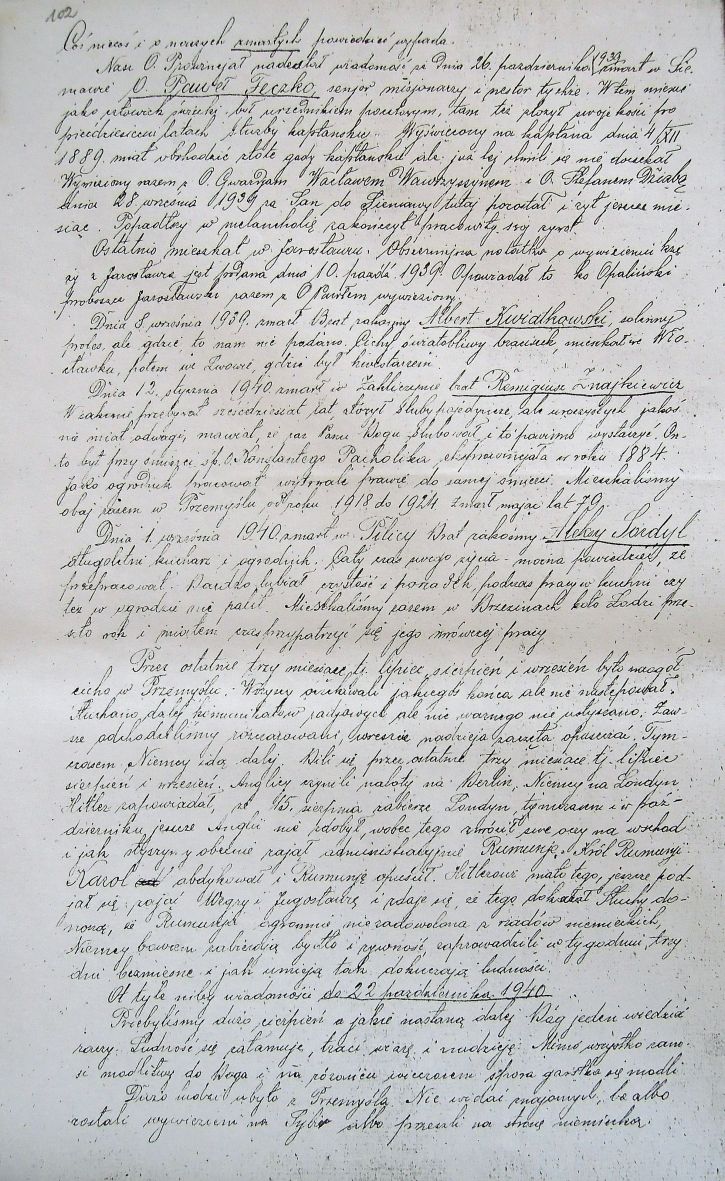 102
Coś niecoś i o naszych zmarłych powiedzieć wypada.
Nasz O. Prowincjał nadesłał wiadomość że dnia 26. października 1939 zmarł w Sie-
niawie O. Paweł Teczko, senjor misjonarzy i nestor tychże. W tem mieniu
jako człowiek świecki był urzędnikiem pocztowym, tam też złożył swoje kości po
pięćdziesięciu latach służby kapłańskiej. Wyświęcony na kapłana dnia 4/XII
1889. miał obchodzić złote gody kapłańskie ale już tej chwili się nie doczekał
Wywieziony razem z O. Gwardjanem Wacławem Wawrzyszynem i O. Stefanem Dziabą
dnia 28 września 1939 za San do Sieniawy tutaj pozostał i żył jeszcze mie-
siąc. Popadłszy w melancholię zakończył pracowity swój żywot.
Ostatnio mieszkał w Jarosławiu. Obszerniejsza notatka o wywiezieniu księ
ży z Jarosławia jest podana dnia 10. paźdź. 1939. Opowiadał to ks Opaliński
proboszcz Jarosławski razem z O Pawłem wywieziony.
Dnia 8. września 1939. zmarł Brat zakonny Albert Kwiatkowski, solenny
profes, ale gdzie to nam nie podano. Cichy świątobliwy braciszek, mieszkał we Wło-
cławku, potem we Lwowie, gdzie był kwestarzem.
Dnia 12. stycznia 1940. zmarł w Zakliczynie brat Remigiusz Znajkiewicz
W zakonie przebywał sześćdziesiąt lat, złożył śluby pojedyńcze, ale uroczystych jakoś
nie miał odwagi, mawiał, że raz Panu Bogu ślubował, i to powinno wystarczyć. On-
to był przy śmierci ś.p. O. Konstantego Pacholika, eksprowincjała w roku 1884.
Jako ogrodnik pracował wytrwale prawie do samej śmierci. Mieszkaliśmy
obaj razem w Przemyślu od roku 1918 do 1924. Zmarł mając lat 79.
Dnia 1. września 1940. zmarł w Pilicy Brat zakonny Aleksy Sordyl
długoletni kucharz i ogrodnik. Cały czas swego życia - można powiedzieć, że
przepracował. Bardzo lubiał czystość i porządek podczas pracy w kuchni czy
też w ogrodzie nie palił. Mieszkaliśmy razem w Brzezinach koło Łodzi prze-
szło rok i miałem czas przypatrzyć się jego mrówczej pracy
Przez ostatnie trzy miesiące tj. lipiec, sierpień i wrzesień było naogół
cicho w Przemyślu. Wszyscy oczekiwali jakiegoś końca ale nie następował.
Słuchano dalej komunikatów radjowych ale nic ważnego nie usłyszano. Zaw-
sze odchodziliśmy rozczarowani, wreszcie nadzieja zaczęła opuszczać. Tym-
czasem, Niemcy idą dalej. Bili się przez ostatnie trzy miesiące tj. lipiec
sierpień i wrzesień. Anglicy czynili naloty na Berlin, Niemcy na Londyn.
Hitler zapowiadał, że 15. sierpnia zabierze Londyn, tymczasem i w paź-
dzierniku jeszcze Anglii nie zdobył, wobec tego zwrócił swe oczy na wschód
i jak słyszymy obecnie zajął administracyjnie Rumunję. Król Rumunji
Karol abdykował i Rumunję opuścił. Hitlerowi mało tego, jeszcze pod-
jął się zająć Węgry i Jugosławię i zdaje się, że tego dokazał. Słuchy do-
noszą, że Rumunja ogromnie niezadowolona z rządów niemieckich.
Niemcy bowiem zabierają bydło i żywność, zaprowadzili w tygodniu trzy
dni bezmięsne i jak umieją tak dokuczają ludności.
Ot tyle niby wiadomości do 22 października 1940
Przebyliśmy dużo cierpień a jakie nastaną dalej Bóg jeden wiedzieć
raczy. Ludność się załamuje, traci wiarę i nadzieję. Mimo wszystko zano-
si modlitwę do Boga i na różańcu wieczorem spora garstka się modli.
Dużo ludzi ubyło z Przemyśla. Nie widać znajomych, bo albo
zostali wywiezieni na Sybir albo przeszli na stronę niemiecką.